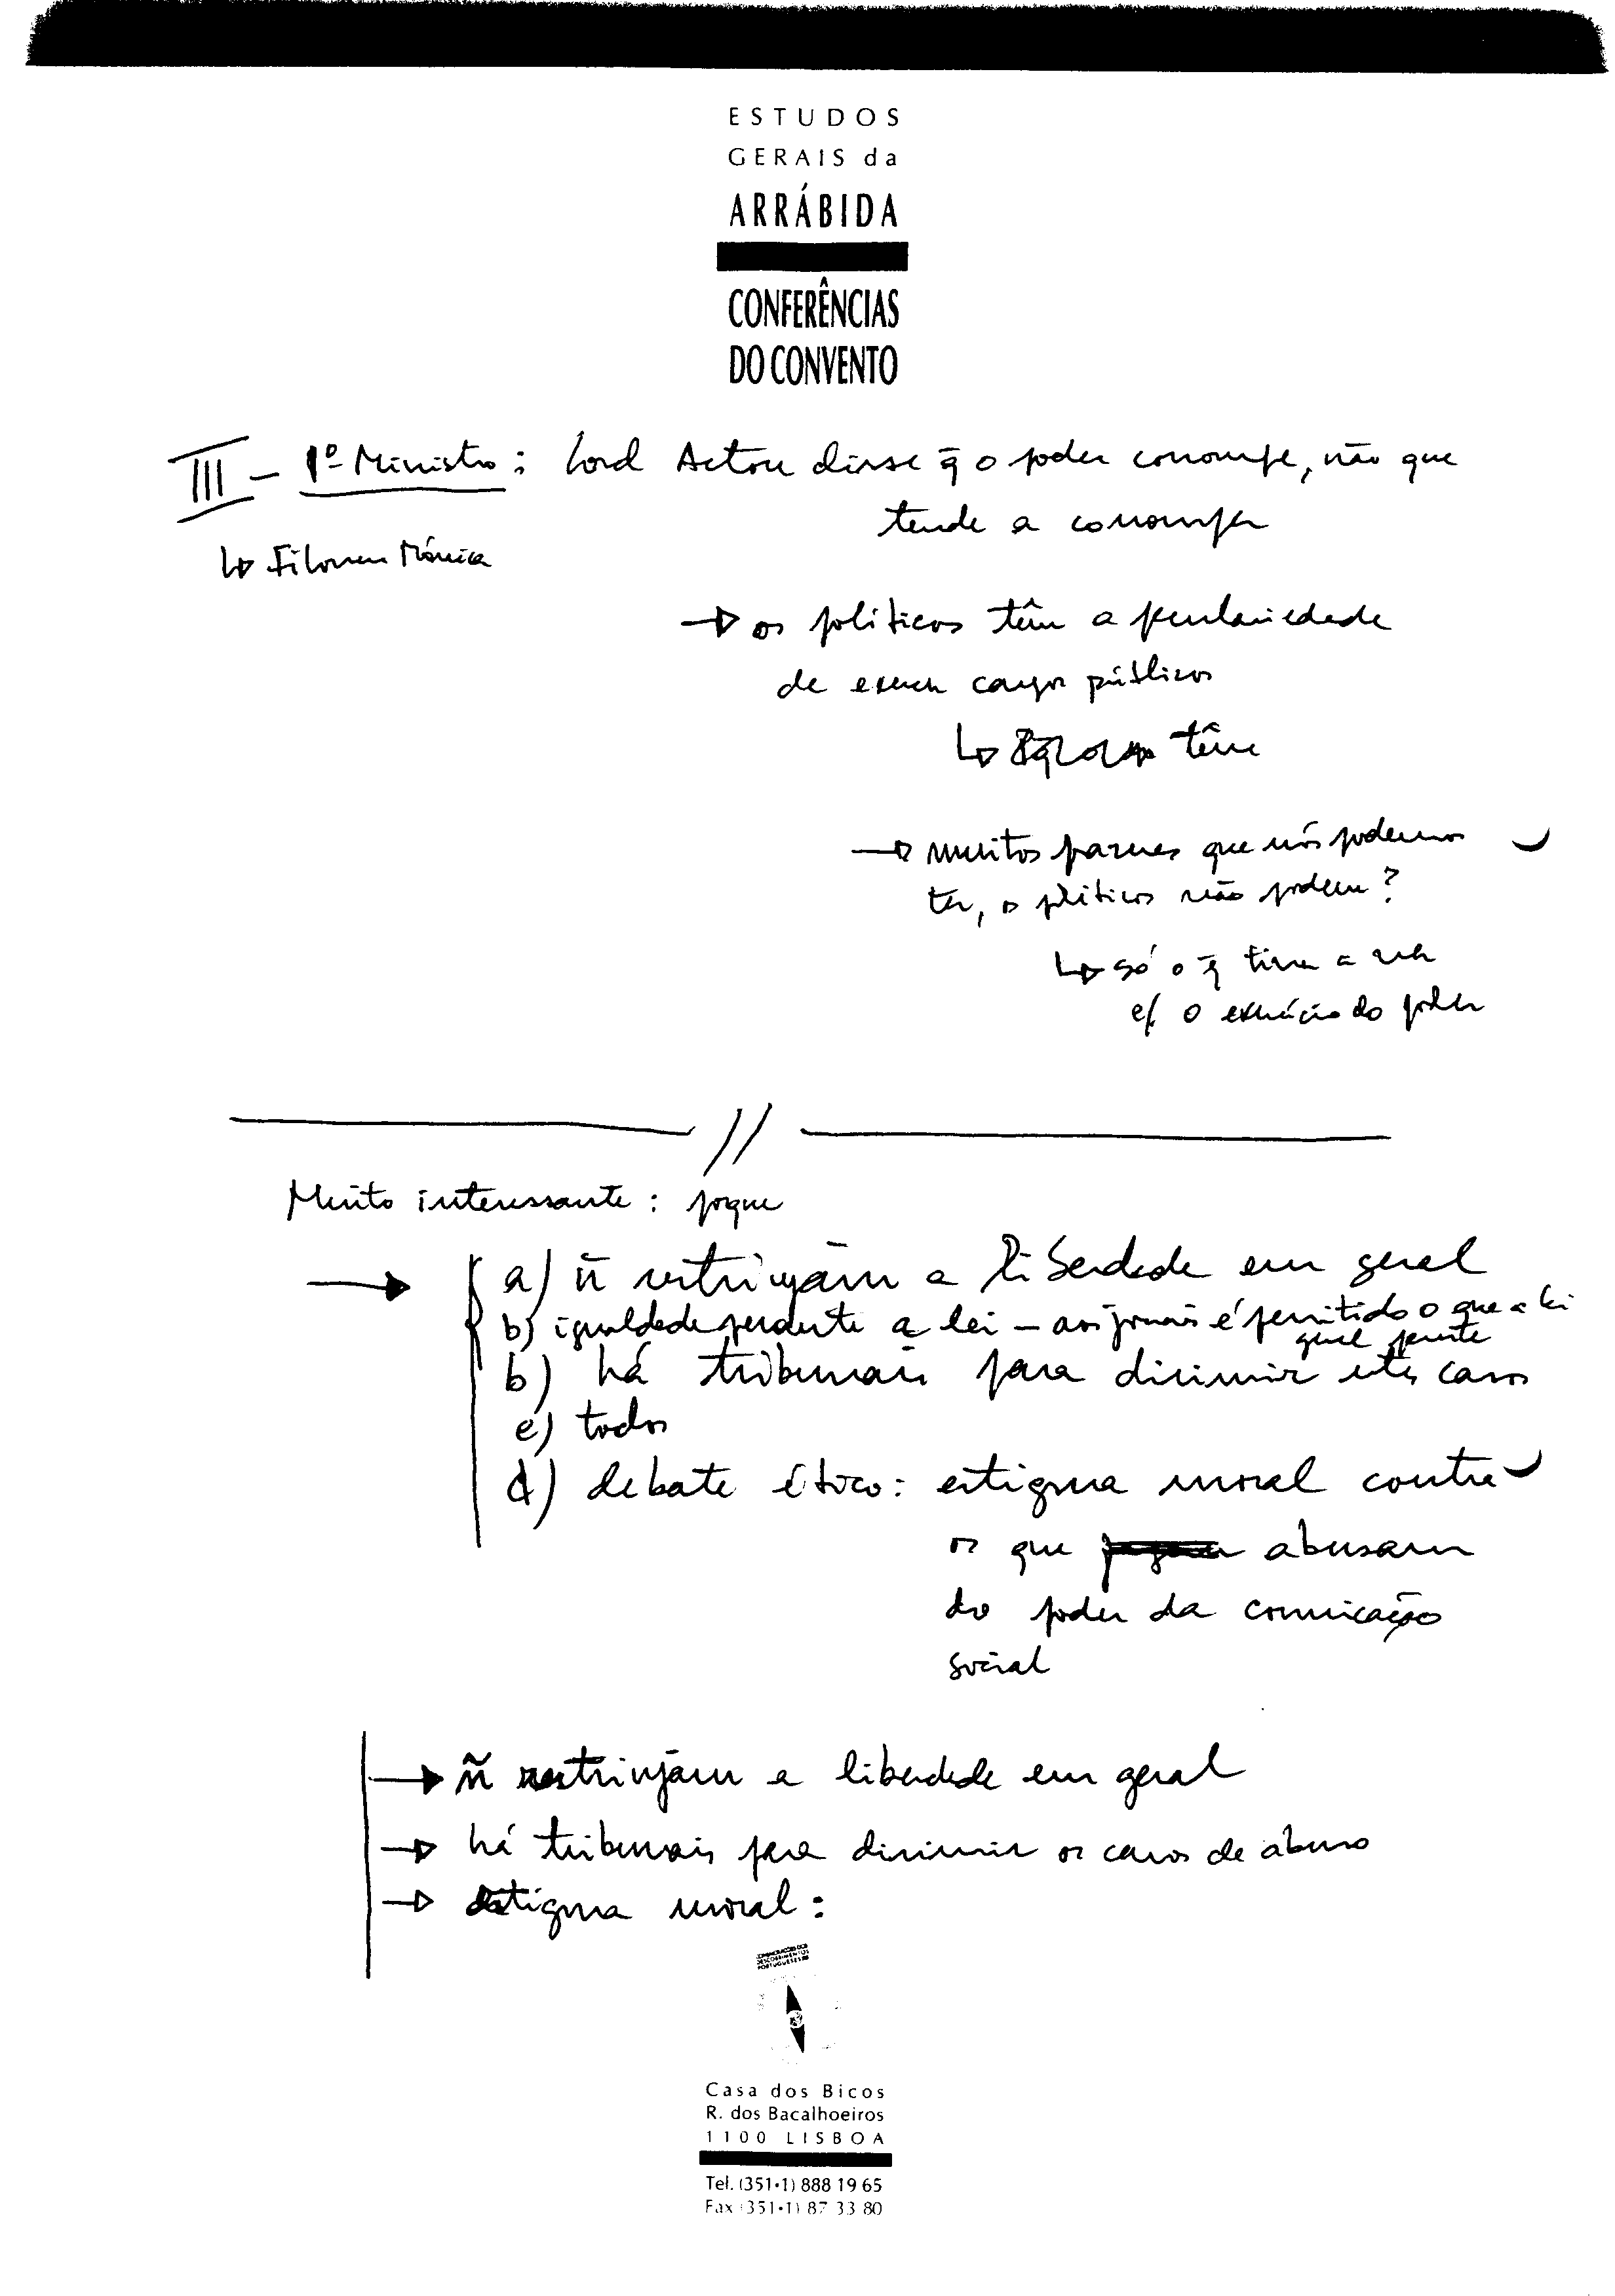 ESTUDOS
GERAIS da
ARRÁBIDA
CONFERÊNCIAS
DO CONVENTO
III - 1º Ministro : Lord Acton disse q̃ o poder corrompe, não que
tende a corromper
↳ Filomen Mónica
→ os políticos têm a peculariedade
de exercer cargos públicos
↳ têm
→ muitos parnes que nós podemos
ter, os políticos não podem ?
↳ só o q̃ tiver a ver
c/ o exercício do poder
//
Muito interessante : porque
→ a) ñ restrinjam a liberdade em geral
b) igualdade perante a lei – aos jornais é permitido o que a lei
geral permite
b) há tribunais para dirimir estes casos
c) todos
d) debate ético : estigma moral contra
os que abusam
do poder da comunicação
social
→ ñ restrinjam a liberdade em geral
→ há tribunais para dirimir os casos de abuso
→ estigma moral :
DESCOBRIMENTOS
PORTUGUESES
Casa dos Bicos
R. dos Bacalhoeiros
1100 LISBOA
Tel. (351•1) 888 19 65
Fax (351•1) 87 33 80